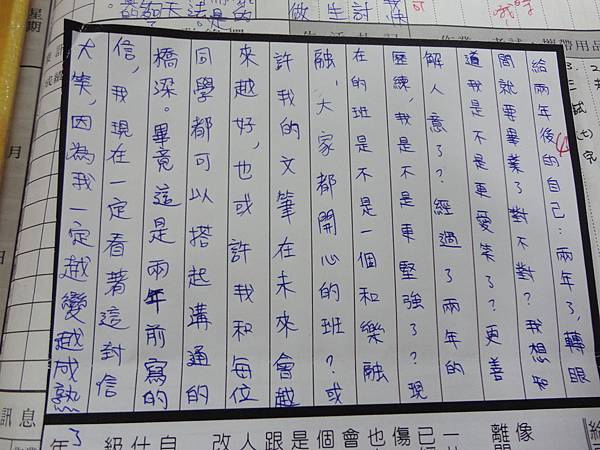 給兩年後的自己：兩年了，轉眼
間就要畢業了對不對？我想知
道我是不是更愛笑了？更善
解人意了？經過了兩年的
歷練，我是不是更堅強了？現
在的班是不是一個和樂融
融，大家都開心的班？或
許我的文筆在未來會越
來越好，也或許我和每位
同學都可以搭起溝通的
橋梁。畢竟這是兩年前寫的
信，我現在一定看著這封信
大笑，因為我一定越變越成熟
了
星期
月
日
訊息
帶用品
改人跟是個會也傷已一